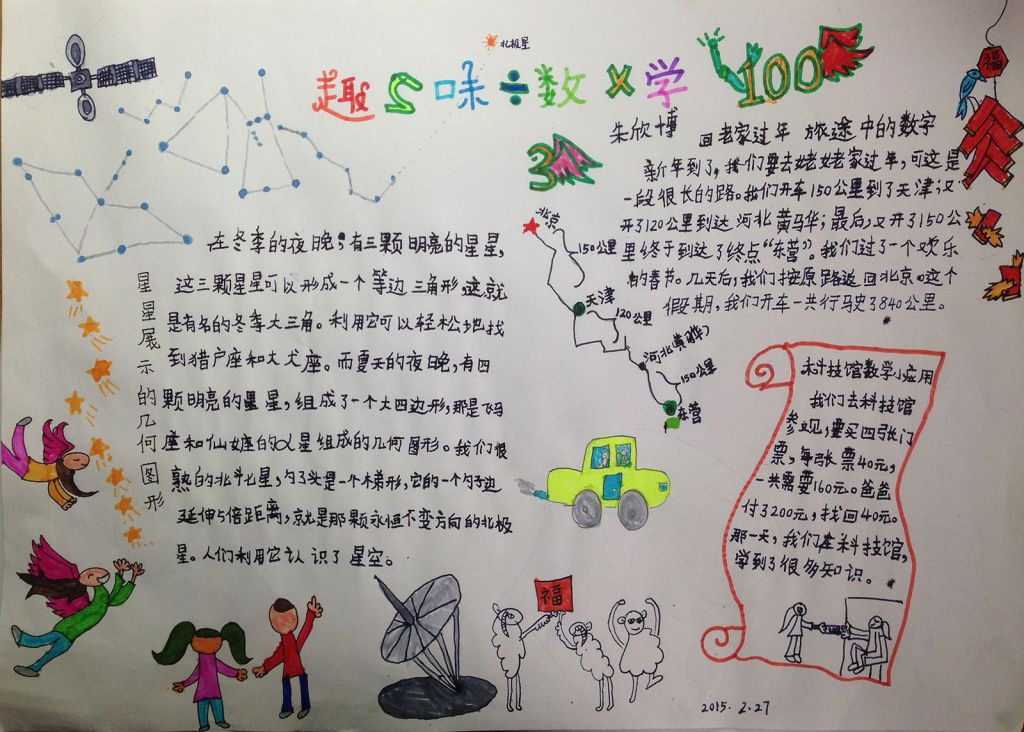 北极星
趣 味 ÷ 数 × 学
100
朱欣博
3
回老家过年 旅途中的数字
新年到了,我们要去姥姥老家过年,可这是
一段很长的路。我们开车150公里到了天津又
开了120公里到达河北黄马华;最后,又开了150公
里终于到达了终点“东营”。我们过了一个欢乐
的春节。几天后,我们按原路返回北京。这个
假期,我们开车一共行驶了840公里。
北京
150公里
天津
120公里
河北(黄骅)
150公里
东营
星星展示的几何图形
在冬季的夜晚,有三颗明亮的星星,
这三颗星星可以形成一个等边三角形,这就
是有名的冬季大三角。利用它可以轻松地找
到猎户座和大犬座。而夏天的夜晚,有四
颗明亮的星星,组成了一个大四边形,那是飞马
座和仙女座的α星组成的几何图形。我们很
熟的北斗七星,勺子头是一个梯形,它的一个勺子边
延伸5倍距离,就是那颗永恒不变方向的北极
星。人们利用它认识了星空。
科技馆数学小应用
我们去科技馆
参观,要买四张门
票,每张票40元,
一共需要160元。爸爸
付了200元,找回40元。
那一天,我们在科技馆,
学到了很多知识。
福
福
2015.2.27